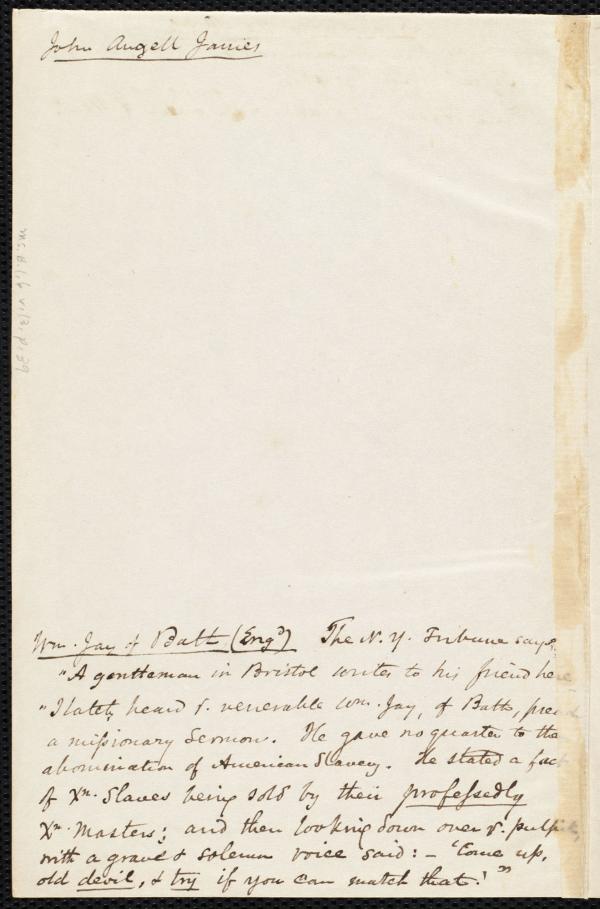 John Angell James
Ms. B. 1. 6 v. 13, p. 39
Wm. Jay of Bath (Engd) The N. Y. Tribune says,
"A gentleman in Bristol writes to his friend here,
"I lately heard ye. venerable Wm. Jay, of Bath, preach
a missionary Sermon. He gave no quarter to the
abomination of American Slavery. He stated a fact
of Xn. Slaves being sold by their professedly
Xn. Masters; and then looking down over ye. pulpit,
with a grave & solemn voice said: – 'Come up,
old devil, & try if you can match that!'"